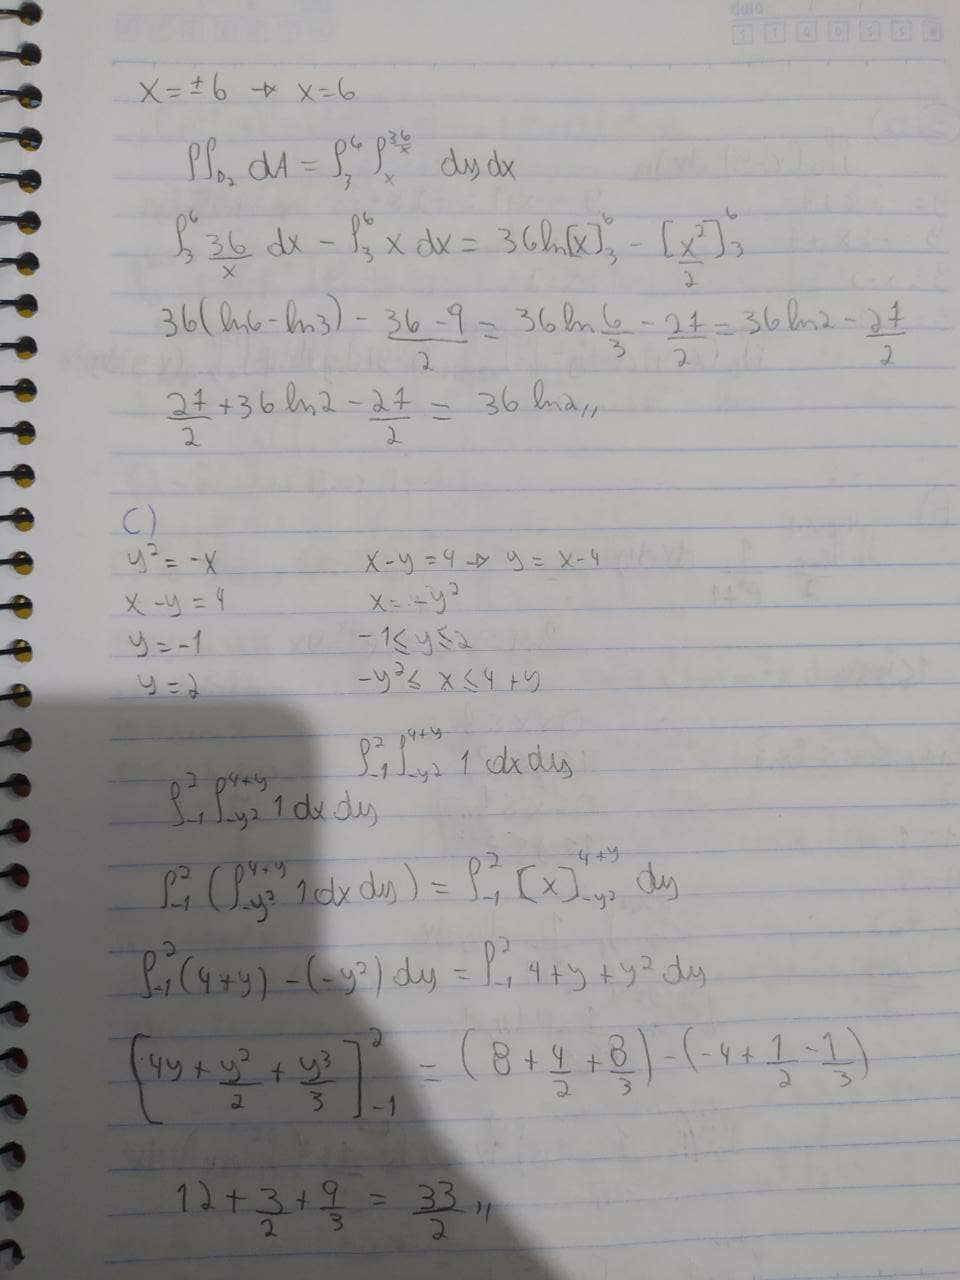 data
x = ±6 → x = 6
∫∫_{D₂} dA = ∫_3^6 ∫_x^{36/x} dy dx
∫_3^6 36/x dx - ∫_3^6 x dx = 36 ln[x]_3^6 - [x²/2]_3^6
36(ln6 - ln3) - (36-9)/2 = 36 ln 6/3 - 27/2 = 36 ln2 - 27/2
27/2 + 36 ln2 - 27/2 = 36 ln2 //
C)
y² = -x    x - y = 4 → y = x - 4
x - y = 4    x = -y²
y = -1    -1 ≤ y ≤ 2
y = 2    -y² ≤ x ≤ 4 + y
∫_{-1}^2 ∫_{-y²}^{4+y} 1 dx dy
∫_{-1}^2 ∫_{-y²}^{4+y} 1 dx dy
∫_{-1}^2 (∫_{-y²}^{4+y} 1 dx dy) = ∫_{-1}^2 [x]_{-y²}^{4+y} dy
∫_{-1}^2 (4+y) - (-y²) dy = ∫_{-1}^2 4 + y + y² dy
[4y + y²/2 + y³/3]_{-1}^2 = (8 + 4/2 + 8/3) - (-4 + 1/2 - 1/3)
12 + 3/2 + 9/3 = 33/2 //